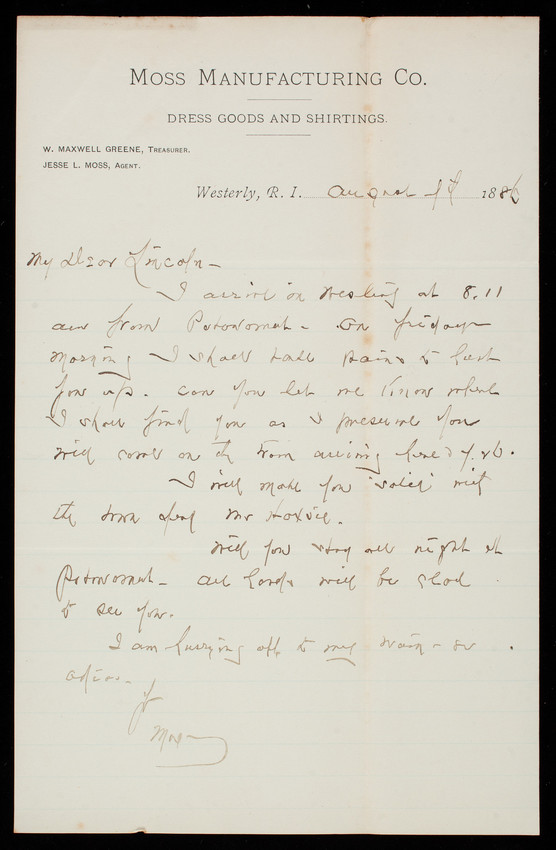 MOSS MANUFACTURING CO.
DRESS GOODS AND SHIRTINGS.
W. MAXWELL GREENE, TREASURER.
JESSE L. MOSS, AGENT.
Westerly, R. I. August 1886
My Dear Lincoln -
I arrive in Westerly at 8.11
am from Potowomut - On friday
morning I shall take pains to hunt
you up. Can you let me know where
I shall find you as I presume you
will come on the train arriving here
I will make you "solid" with
the town clerk Mr Hoxsie.
Will you stay all night at
Potowomut - all hands will be glad
to see you.
I am hurrying off to my train - so
adieu -
Max